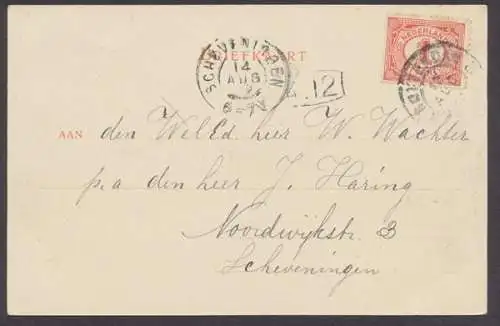 NEDERLAND
BRIEFKAART
SCHEVENINGEN
14
AUG
6-7V
12
AAN den WelEd. heer W. Wachter
p.a den heer J. Haring
Noordwijkstr. 3
Scheveningen